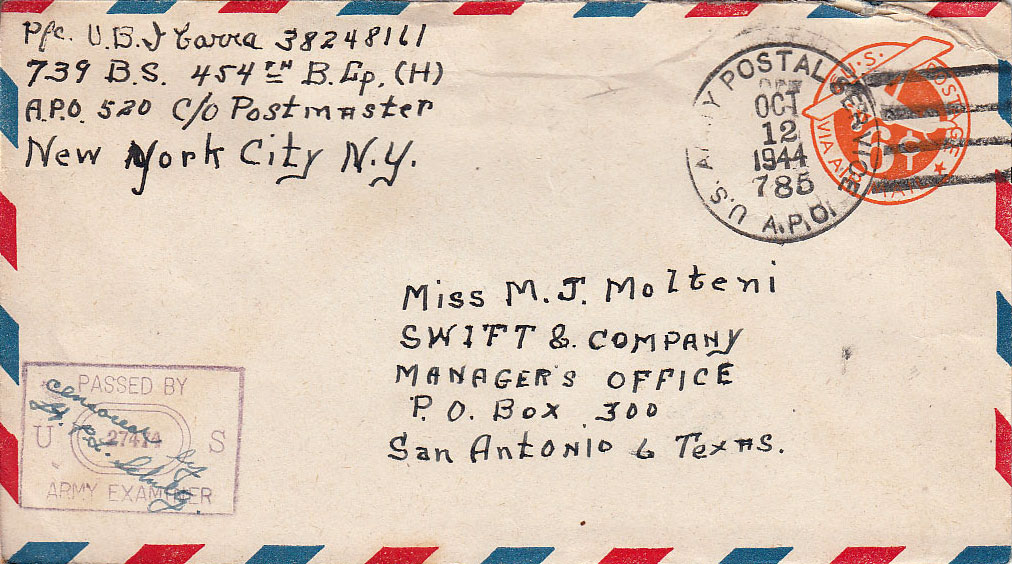 Pfc. U.B. Ibarra 38248161
739 B.S. 454TH B.Gp. (H)
A.P.O. 520 C/o Postmaster
New York City N.Y.
U.S. ARMY POSTAL SERVICE
OCT
12
1944
785
A.P.O.
U.S. POSTAGE
VIA AIR MAIL
6¢
Miss M.J. Molteni
SWIFT & COMPANY
MANAGER'S OFFICE
P.O. Box 300
San Antonio 6 Texas.
PASSED BY
U 27414 S
ARMY EXAMINER
censored by
Lt.